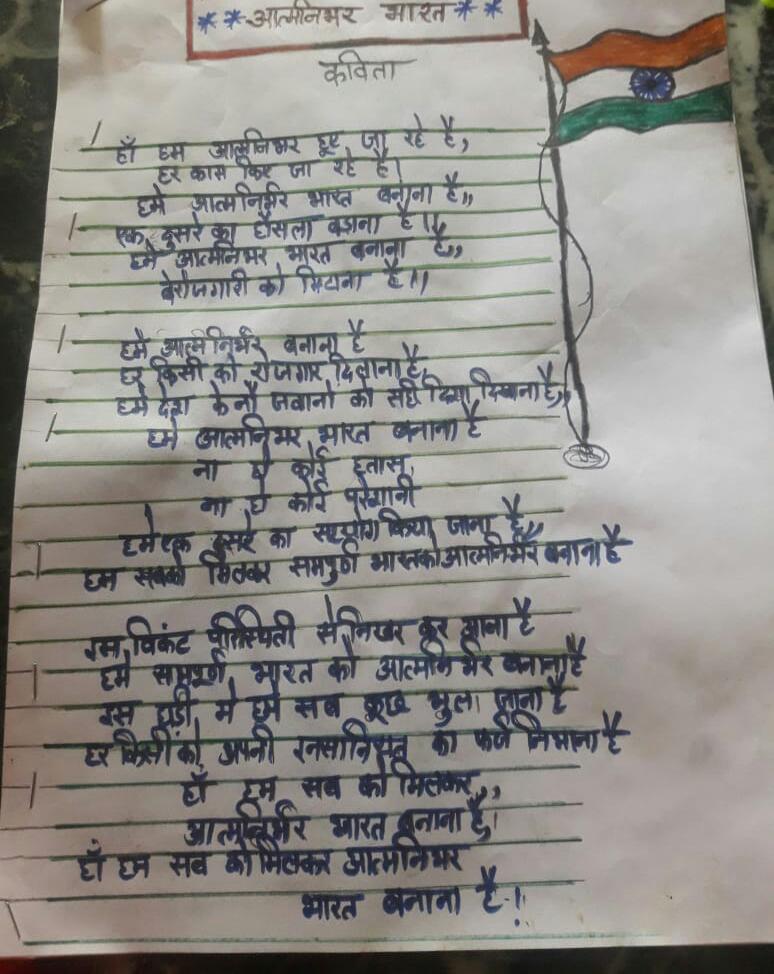 * * आत्मनिभर भारत * *
कविता
हाँ हम आत्मनिभर हुए जा रहे है,
हर काम किए जा रहे है।
हमे आत्मनिर्भर भारत बनाना है,,
एक दुसरे का हौसला बड़ाना है।।
हमे आत्मनिभर भारत बनाना है,,
बेरोजगारी को मिटाना है।।
हमे आत्मनिर्भर बनाना है
हर किसी को रोजगार दिलाना है,
हमे देश के नौ जवानो को सही दिशा दिखाना है,,
हमे आत्मनिभर भारत बनाना है
ना हो कोई हतास,
ना हो कोई परेशानी
हमे एक दुसरे का सहयोग किया जाना है,,
हम सबको मिलकर समपुर्ण भारत को आत्मनिर्भर बनाना है
इस विकंट परिस्थिती से निखर कर आना है
हमे सामपूर्ण भारत को आत्मनिर्भर बनाना है
इस घड़ी मे हमे सब कुछ भुला जाना है
हर किसी को, अपनी इनसानियत का फर्ज निभाना है
हाँ हम सब को मिलकर,,
आत्मनिर्भर भारत बनाना है,
हाँ हम सब को मिलकर आत्मनिभर
भारत बनाना है!